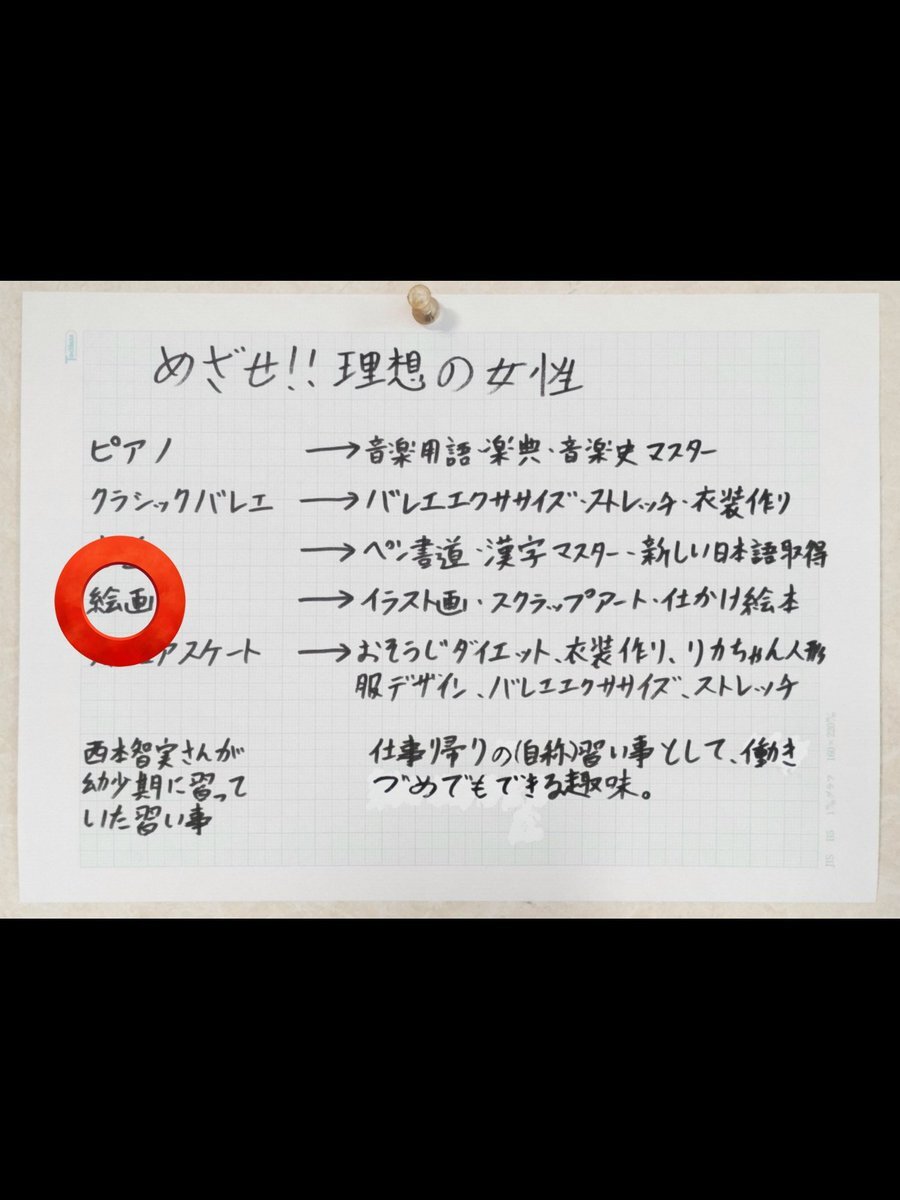 めざせ!!理想の女性
ピアノ → 音楽用語・楽典・音楽史マスター
クラシックバレエ → バレエエクササイズ・ストレッチ・衣装作り
→ ペン書道・漢字マスター・新しい日本語取得
絵画 → イラスト画・スクラップアート・仕かけ絵本
アスケート → おそうじダイエット、衣装作り、リカちゃん人形
服デザイン、バレエエクササイズ、ストレッチ
西本智実さんが
幼少期に習って
いた習い事
仕事帰りの(自称)習い事として、働き
づめでもできる趣味。